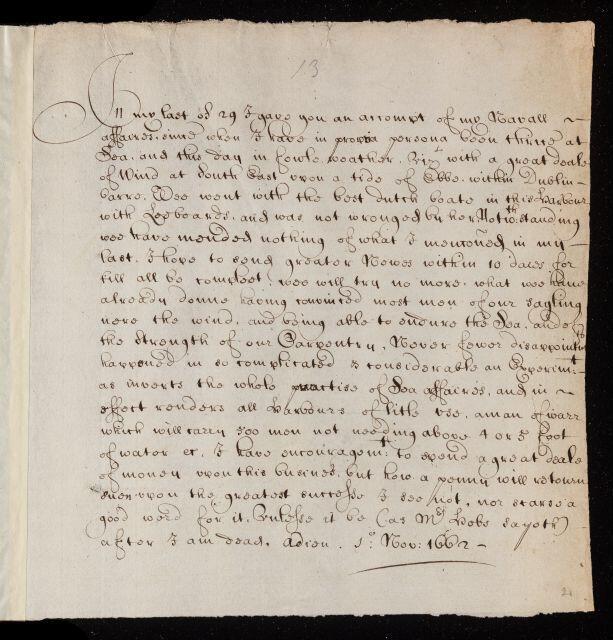 13
In my last of 29 I gave you an accompt of my Navall
affaires, since when I have in propria persona been thrice at
Sea, and this day in fowle weather. Vizt with a great deale
of Wind at South East upon a tide of Ebbe within Dublin-
barre. Wee went with the best dutch boate in this Harbour
with Leeboards, and was not wronged by her Notwthstanding
wee have mended nothing of what I mencõned in my
last. I hope to send greater Newes within 10 daies, for
till all be compleet, wee will try no more, what wee have
already donne having convinced most men of our sayling
nere the wind, and being able to endure the Sea, and of
the strength of our Carpentry. Never fewer disappointm
happened in so complicated & considerable an Experimt
as inverts the whole practise of Sea affaires, and in
effect renders all Harbours of litle use, a man of warr
which will carry 500 men not needing above 4 or 5 foot
of water &c. I have encouragemt: to spend a great deale
of money upon this busines, but how a penny will retourn
even upon the greatest successe I see not, nor scarse a
good word for it, Unlesse it be (as Mr Hobs sayeth)
after I am dead. Adieu. 1o. Nov: 1662 -
2